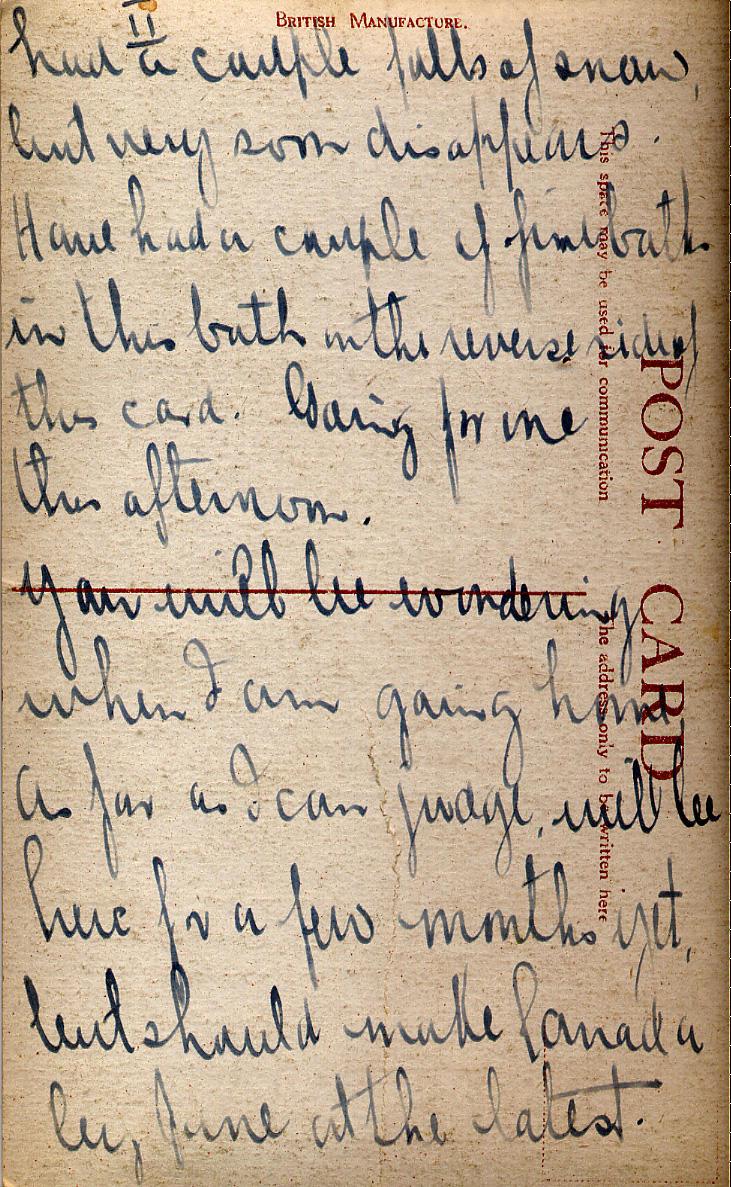 II
BRITISH MANUFACTURE.
had a couple falls of snow,
but very soon disappears.
Have had a couple of fine baths
in this bath on the reverse side of
this card. Going for one
this afternoon.
You will be wondering
when I am going home
As far as I can judge, will be
here for a few months yet,
but should make Canada
by June at the latest.
This space may be used for communication
The address only to be written here
POST CARD